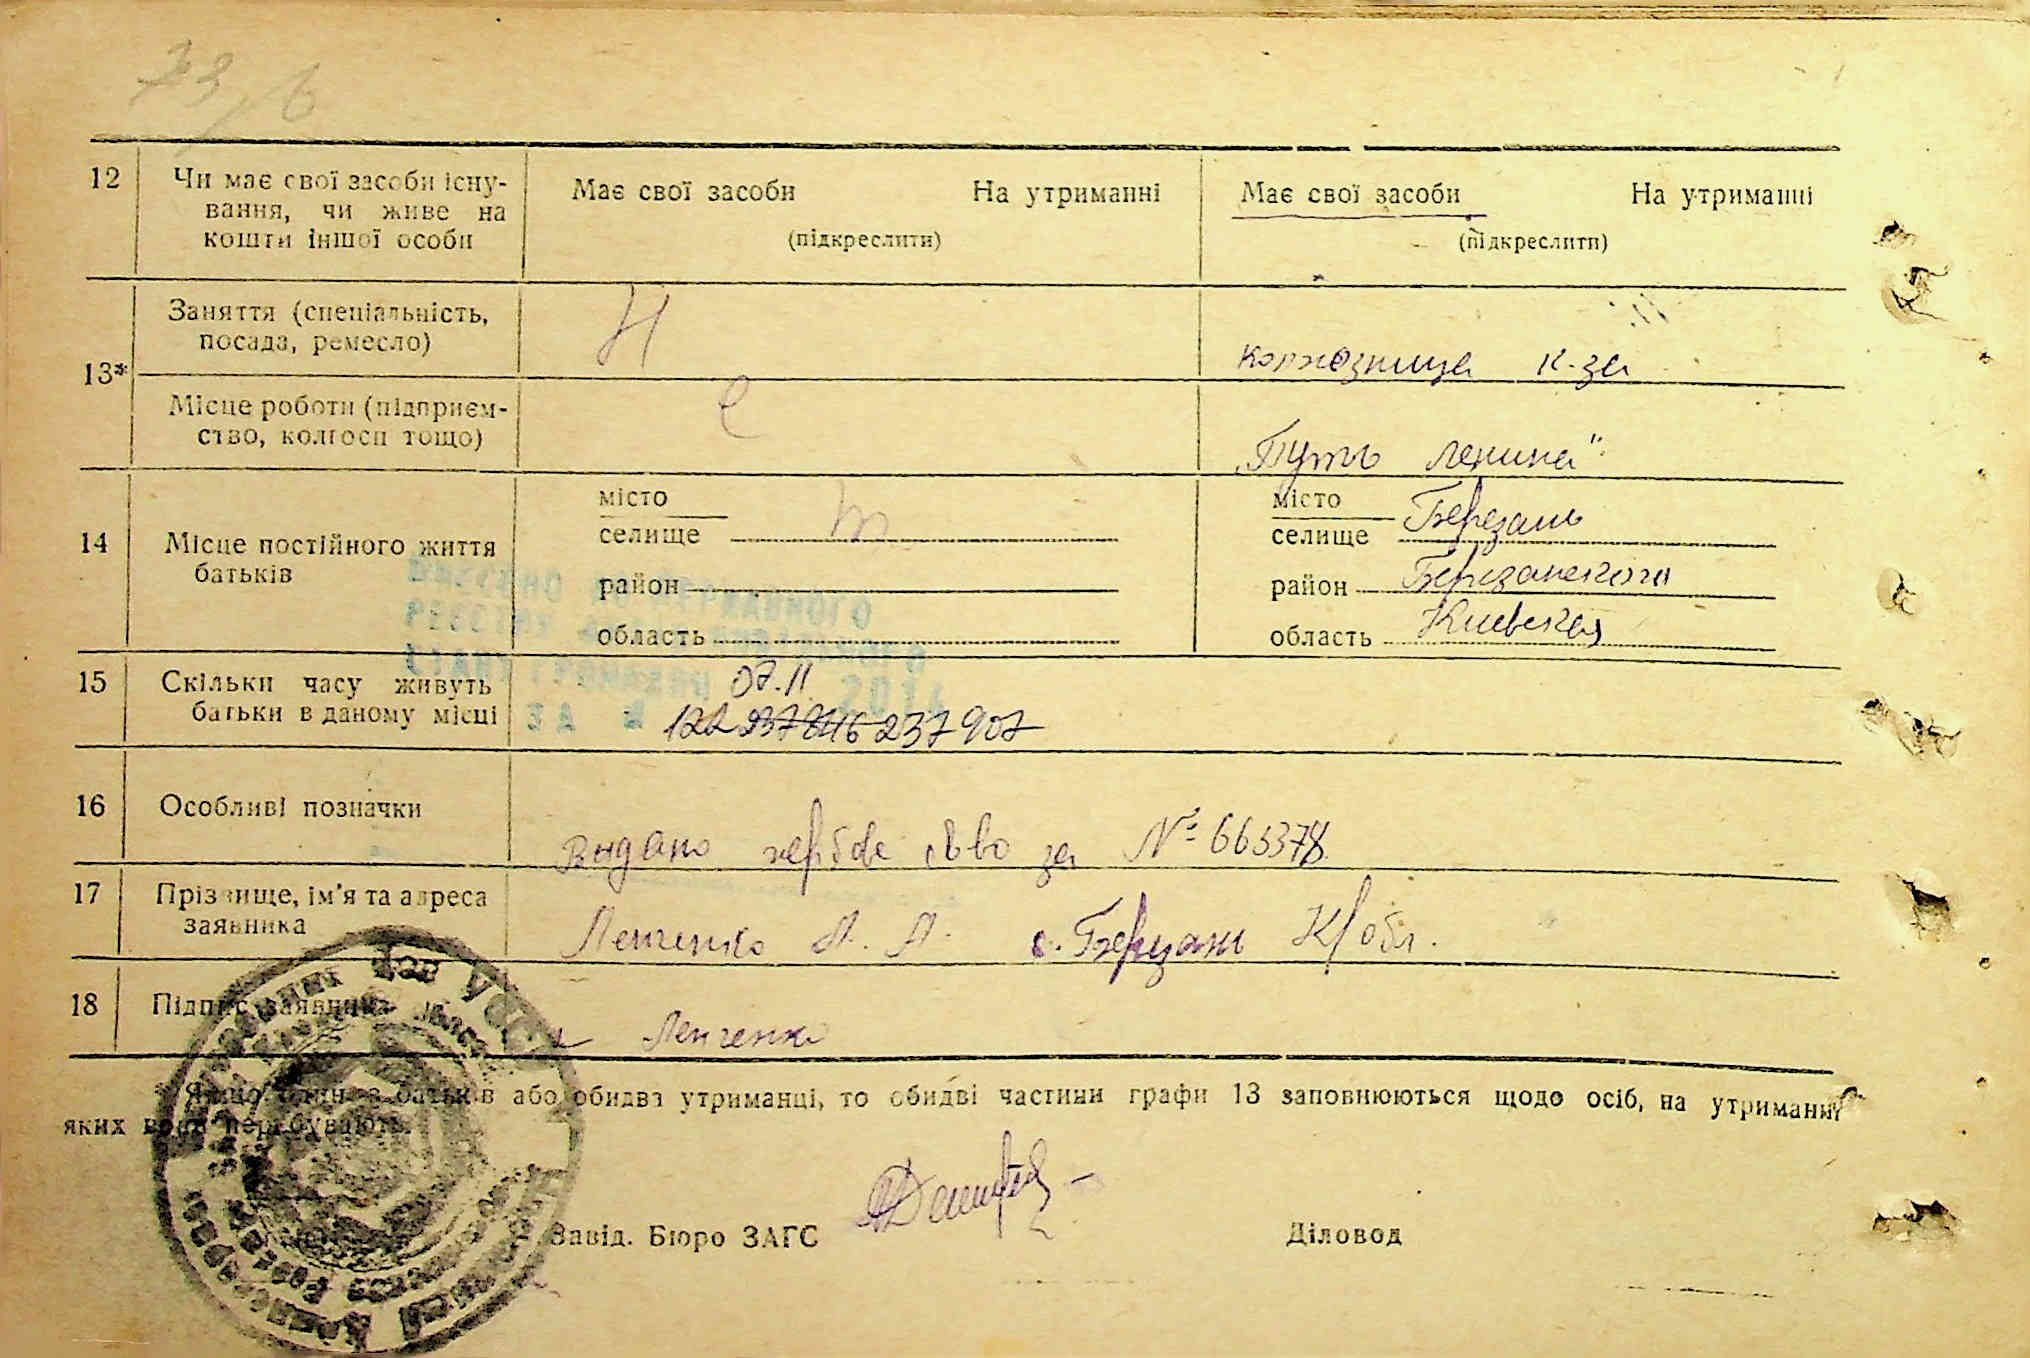 73/6
12 Чи має свої засоби існу- Має свої засоби На утриманні Має свої засоби На утриманні
вання, чи живе на
кошти іншої особи (підкреслити) (підкреслити)
Заняття (спеціальність,
посада, ремесло) Н колхозница к-за
13*
Місце роботи (підприєм- е
ство, колгосп тощо) "Путь Ленина"
місто місто
14 Місце постійного життя селище т селище Березань
батьків район район Березанского
область область Киевская
ВНЕСЕНО ДО ДЕРЖАВНОГО
РЕЄСТРУ АКТІВ ЦИВІЛЬНОГО
СТАНУ ГРОМАДЯН 2014
ЗА №
15 Скільки часу живуть 07.11.
батьки в даному місці 122 237846 237907
16 Особливі позначки
Выдано гербове св-во за № 665378
17 Прізвище, ім'я та адреса
заявника Ленченко А. А. с. Березань К обл.
18 Підпис заявника Ленченко
* Якщо один з батьків або обидва утриманці, то обидві частини графи 13 заповнюються щодо осіб, на утриманні
яких вони перебувають.
Завід. Бюро ЗАГС Діловод